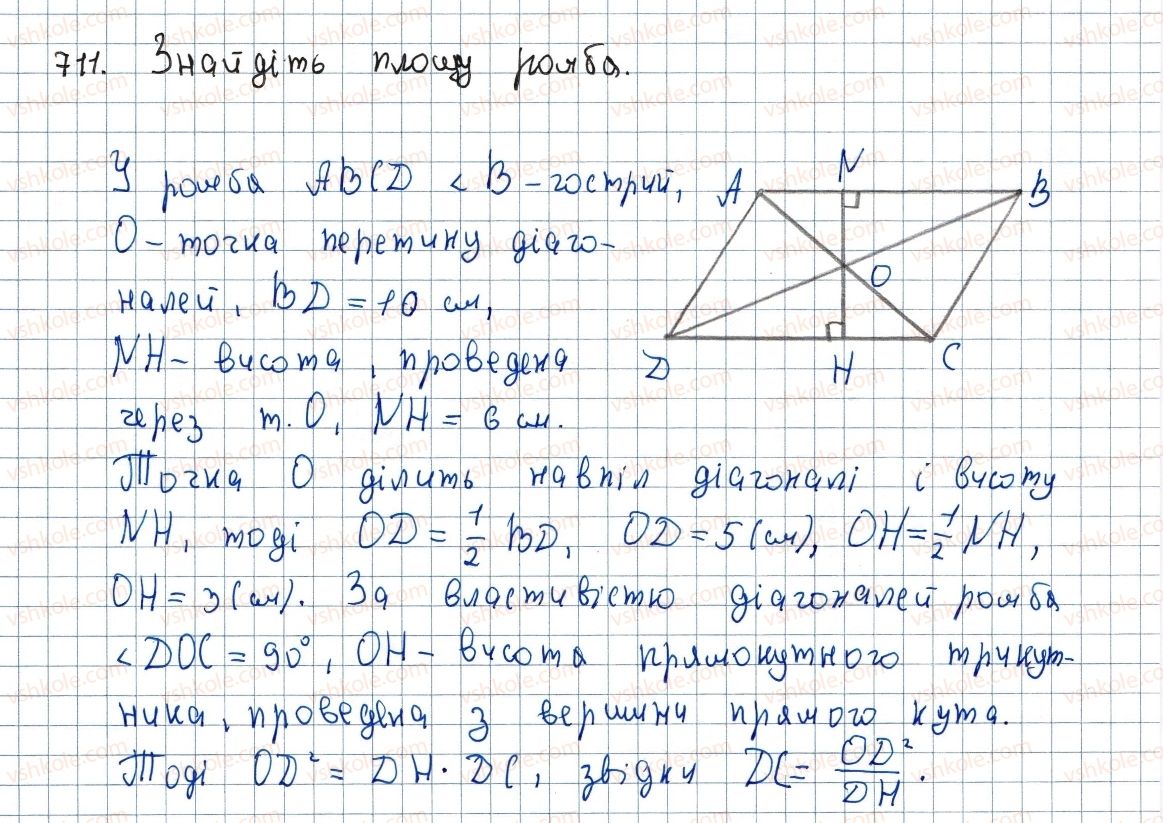 711. Знайдіть площу ромба.
У ромба ABCD < B - гострий,
O - точка перетину діаго-
налей, BD = 10 см,
NH - висота, проведена
через т. O, NH = 6 см.
Точка O ділить навпіл діагоналі і висоту
NH, тоді OD = 1/2 BD, OD = 5 (см), OH = 1/2 NH,
OH = 3 (см). За властивістю діагоналей ромба
< DOC = 90°, OH - висота прямокутного трикут-
ника, проведена з вершини прямого кута.
Тоді OD² = DH · DC, звідки DC = OD²/DH.
A N B
O
D H C
vshkole.com